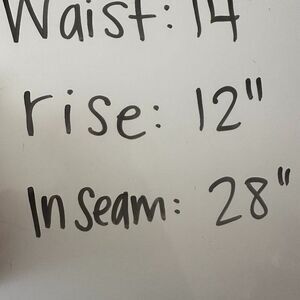 Waist: 14
rise: 12"
Inseam: 28"